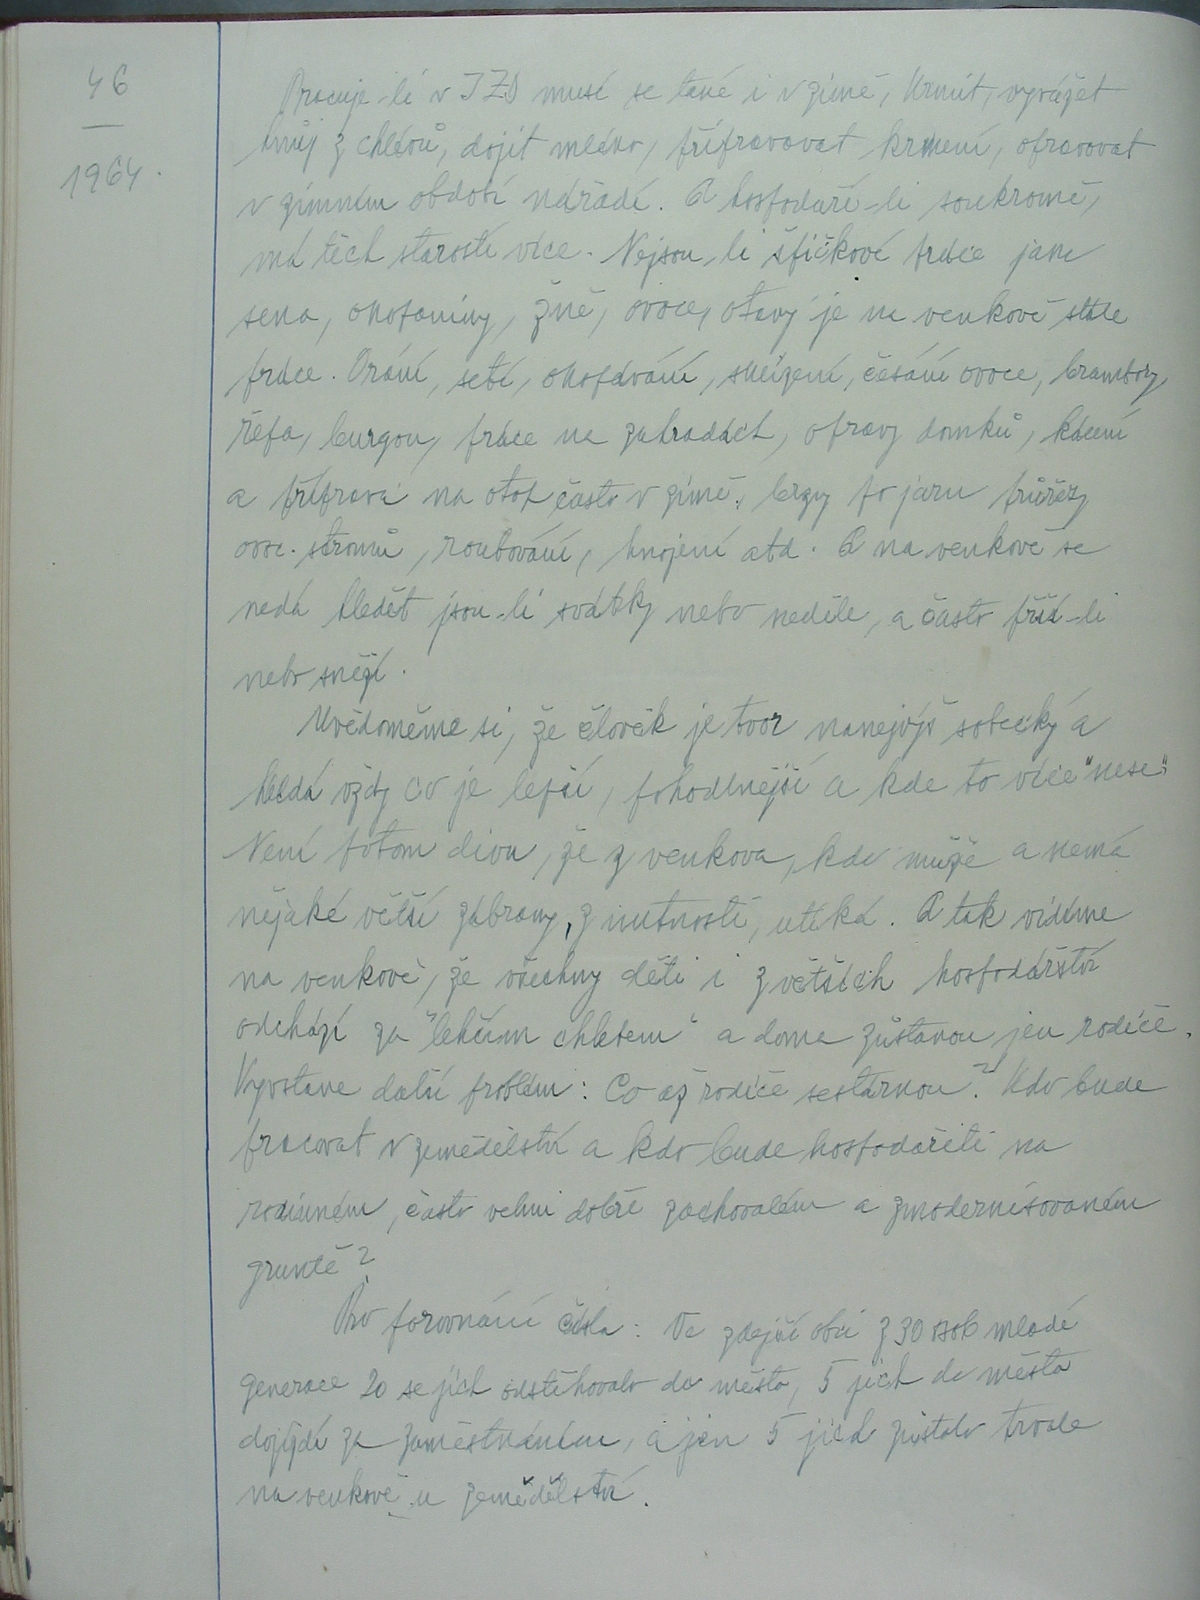 46
1964.
Pracuje-li v JZD musí se také i v zimě, krmit, vyvážet
hnůj z chlévů, dojit mléko, připravovat krmení, opravovat
v zimním období nářadí. A hospodaří-li soukromě,
má těch starostí více. Nejsou li špičkové práce jako
sena, okopaniny, žně, ovoce, otavy je na venkově stále
práce. Orání, setí, okopávání, sklízení, česání ovoce, brambory,
řepa, burgon, práce na zahradách, opravy domků, kácení
a příprava na otop často v zimě, brzy po jaru průřezy
ovoc. stromů, roubování, hnojení atd. A na venkově se
nedá hledět jsou-li svátky nebo neděle, a často prší-li
nebo sněží.
Uvědoměme si, že člověk je tvor nanejvýš sobecký a
hledá vždy co je lepší, pohodlnější a kde to více "nese".
Není potom divu, že z venkova, kdo může a nemá
nějaké větší zábrany, z nutnosti, utíká. A tak vidíme
na venkově, že všechny děti i z větších hospodářství
odchází za "lehčím chlebem" a doma zůstanou jen rodiče.
Vyvstane další problém: Co až rodiče sestárnou? Kdo bude
pracovat v zemědělství a kdo bude hospodařiti na
rodinném, často velmi dobře zachovalém a zmodernisovaném
gruntě?
Pro porovnání čísla: Ve zdejší obci z 30 osob mladé
generace 20 se jich odstěhovalo do města, 5 jich do města
dojíždí za zaměstnáním, a jen 5 jich zůstalo trvale
na venkově u zemědělství.